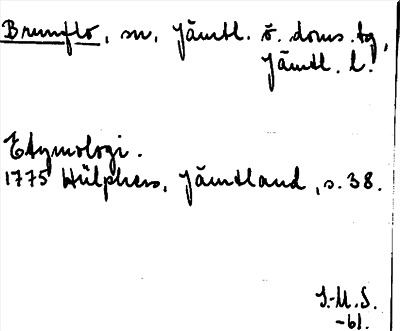 Brunflo, sn, Jämtl. ö. doms.tg,
Jämtl. l.
Etymologi.
1775 Hülphers, Jämtland, s. 38.
J.-M.S.
-61.